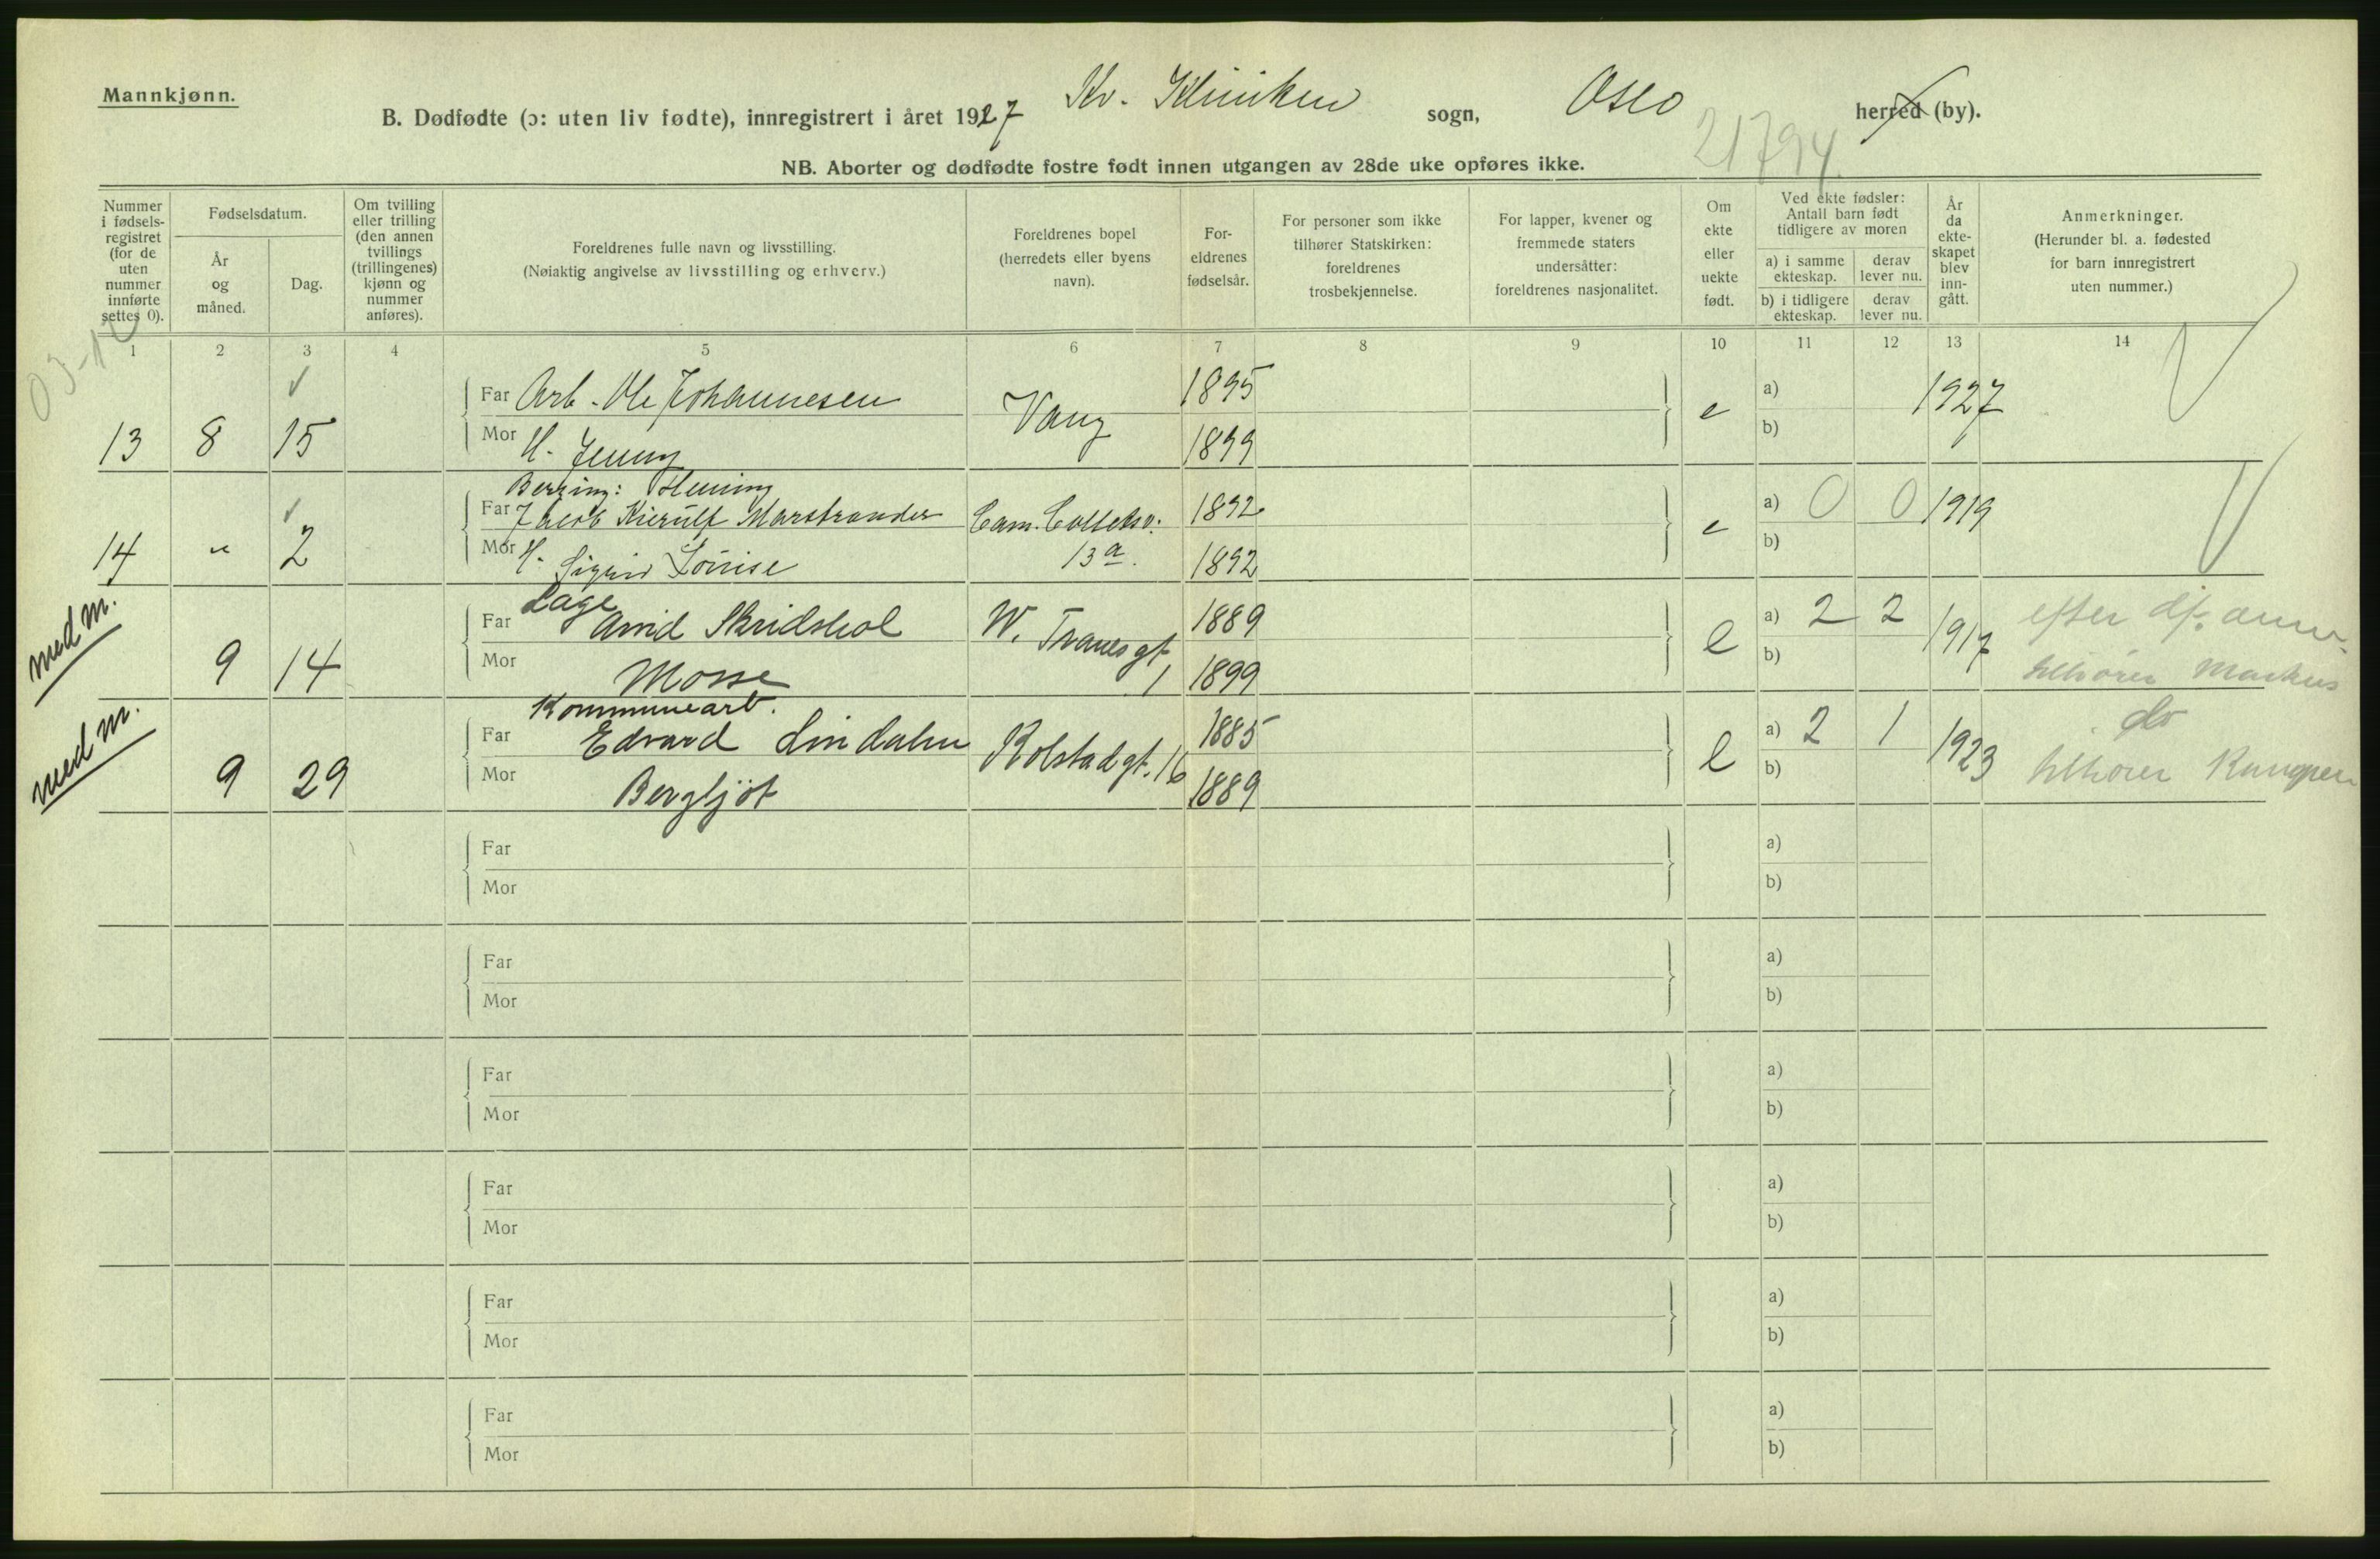 Mannkjønn.
B. Dødfødte (ɔ: uten liv fødte), innregistrert i året 1927 Kv. Kliniken sogn, Oslo herred (by).
21794
NB. Aborter og dødfødte fostre født innen utgangen av 28de uke opføres ikke.
Nummer
i fødsels-
registret
(for de
uten
nummer
innførte
settes 0).
Fødselsdatum.
År
og
måned.
Dag.
Om tvilling
eller trilling
(den annen
tvillings
(trillingenes)
kjønn og
nummer
anføres).
Foreldrenes fulle navn og livsstilling.
(Nøiaktig angivelse av livsstilling og erhverv.)
Foreldrenes bopel
(herredets eller byens
navn).
For-
eldrenes
fødselsår.
For personer som ikke
tilhører Statskirken:
foreldrenes
trosbekjennelse.
For lapper, kvener og
fremmede staters
undersåtter:
foreldrenes nasjonalitet.
Om
ekte
eller
uekte
født.
Ved ekte fødsler:
Antall barn født
tidligere av moren
a) i samme
ekteskap.
derav
lever nu.
b) i tidligere
ekteskap.
derav
lever nu.
År
da
ekte-
skapet
blev
inn-
gått.
Anmerkninger.
(Herunder bl. a. fødested
for barn innregistrert
uten nummer.)
1 2 3 4 5 6 7 8 9 10 11 12 13 14
Far Arb. Ole Johannesen 1895 a) 1927
13 8 15 Vang e
Mor H. Jenny 1899 b)
Far Jacob Kierulf Marstrander Cam. Colletsv. 1892 a) 0 0 1919
14 " 2 e
Mor H. Sigrid Louise 13a. 1892 b)
med m.
Lage
Far Arvid Skridshol W. Tranes gt 1889 a) 2 2 1917 efter df. anm.
9 14 e
Mor Mosse 1 1899 b) tilhører Markus
med m.
Kommunearb.
Far Edvard Lindahn 1885 a) 2 1 1923 do
9 29 Kolstadgt. 16 e
Mor Bergljot 1889 b) tilhører Kampen
Far a)
Mor b)
Far a)
Mor b)
Far a)
Mor b)
Far a)
Mor b)
Far a)
Mor b)
Far a)
Mor b)